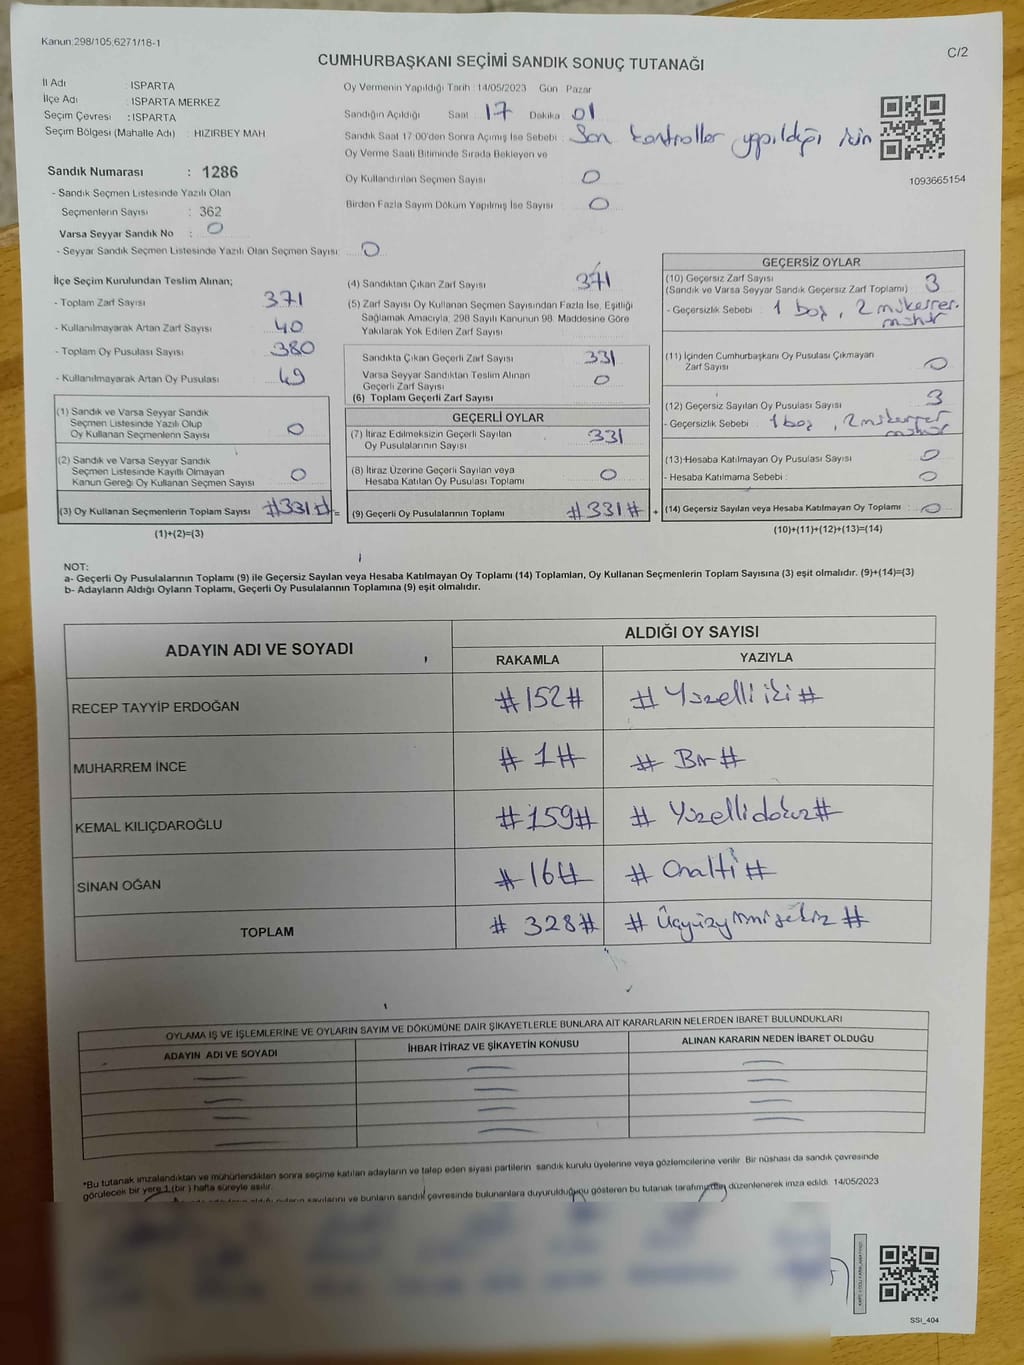 Kanun 298/105,6271/18-1
C/2
CUMHURBAŞKANI SEÇİMİ SANDIK SONUÇ TUTANAĞI
İl Adı : ISPARTA
İlçe Adı : ISPARTA MERKEZ
Seçim Çevresi : ISPARTA
Seçim Bölgesi (Mahalle Adı) : HIZIRBEY MAH
Sandık Numarası : 1286
- Sandık Seçmen Listesinde Yazılı Olan
Seçmenlerin Sayısı : 362
Varsa Seyyar Sandık No : 0
- Seyyar Sandık Seçmen Listesinde Yazılı Olan Seçmen Sayısı : 0
Oy Vermenin Yapıldığı Tarih : 14/05/2023 Gün Pazar
Sandığın Açıldığı Saat 17 Dakika 01
Sandık Saat 17:00'den Sonra Açımış İse Sebebi : Son kontroller yapıldığı için
Oy Verme Saati Bitiminde Sırada Bekleyen ve
Oy Kullandırılan Seçmen Sayısı 0
Birden Fazla Sayım Döküm Yapılmış İse Sayısı 0
1093665154
İlçe Seçim Kurulundan Teslim Alınan;
- Toplam Zarf Sayısı 371
- Kullanılmayarak Artan Zarf Sayısı 40
- Toplam Oy Pusulası Sayısı 380
- Kullanılmayarak Artan Oy Pusulası 49
(1) Sandık ve Varsa Seyyar Sandık
Seçmen Listesinde Yazılı Olup
Oy Kullanan Seçmenlerin Sayısı 0
(2) Sandık ve Varsa Seyyar Sandık
Seçmen Listesinde Kayıtlı Olmayan
Kanun Gereği Oy Kullanan Seçmen Sayısı 0
(3) Oy Kullanan Seçmenlerin Toplam Sayısı #331# =
(1)+(2)=(3)
(4) Sandıktan Çıkan Zarf Sayısı 371
(5) Zarf Sayısı Oy Kullanan Seçmen Sayısından Fazla İse, Eşitliği
Sağlamak Amacıyla, 298 Sayılı Kanunun 98. Maddesine Göre
Yakılarak Yok Edilen Zarf Sayısı
Sandıkta Çıkan Geçerli Zarf Sayısı 331
Varsa Seyyar Sandıktan Teslim Alınan
Geçerli Zarf Sayısı 0
(6) Toplam Geçerli Zarf Sayısı
GEÇERLİ OYLAR
(7) İtiraz Edilmeksizin Geçerli Sayılan
Oy Pusulalarının Sayısı 331
(8) İtiraz Üzerine Geçerli Sayılan veya
Hesaba Katılan Oy Pusulası Toplamı 0
(9) Geçerli Oy Pusulalarının Toplamı #331# +
GEÇERSİZ OYLAR
(10) Geçersiz Zarf Sayısı
(Sandık ve Varsa Seyyar Sandık Geçersiz Zarf Toplamı) 3
- Geçersizlik Sebebi : 1 boş, 2 mükerrer
mühür
(11) İçinden Cumhurbaşkanı Oy Pusulası Çıkmayan
Zarf Sayısı 0
(12) Geçersiz Sayılan Oy Pusulası Sayısı 3
- Geçersizlik Sebebi : 1 boş, 2 mükerrer
mühür
(13) Hesaba Katılmayan Oy Pusulası Sayısı 0
- Hesaba Katılmama Sebebi : 0
(14) Geçersiz Sayılan veya Hesaba Katılmayan Oy Toplamı : 0
(10)+(11)+(12)+(13)=(14)
NOT:
a- Geçerli Oy Pusulalarının Toplamı (9) ile Geçersiz Sayılan veya Hesaba Katılmayan Oy Toplamı (14) Toplamları, Oy Kullanan Seçmenlerin Toplam Sayısına (3) eşit olmalıdır. (9)+(14)=(3)
b- Adayların Aldığı Oyların Toplamı, Geçerli Oy Pusulalarının Toplamına (9) eşit olmalıdır.
ADAYIN ADI VE SOYADI
ALDIĞI OY SAYISI
RAKAMLA YAZIYLA
RECEP TAYYİP ERDOĞAN #152# #Yüzelliiki#
MUHARREM İNCE #1# #Bir#
KEMAL KILIÇDAROĞLU #159# #Yüzellidokuz#
SİNAN OĞAN #16# #Onaltı#
TOPLAM #328# #Üçyüzyirmisekiz#
OYLAMA İŞ VE İŞLEMLERİNE VE OYLARIN SAYIM VE DÖKÜMÜNE DAİR ŞİKAYETLERLE BUNLARA AİT KARARLARIN NELERDEN İBARET BULUNDUKLARI
ADAYIN ADI VE SOYADI İHBAR İTİRAZ VE ŞİKAYETİN KONUSU ALINAN KARARIN NEDEN İBARET OLDUĞU
*Bu tutanak imzalandıktan ve mühürlendikten sonra seçime katılan adayların ve talep eden siyasi partilerin sandık kurulu üyelerine veya gözlemcilerine verilir. Bir nüshası da sandık çevresinde
görülecek bir yere 1 (bir ) hafta süreyle asılır.
sayılarını ve bunların sandık çevresinde bulunanlara duyurulduğunu gösteren bu tutanak tarafımızdan düzenlenerek imza edildi. 14/05/2023
SSİ_404